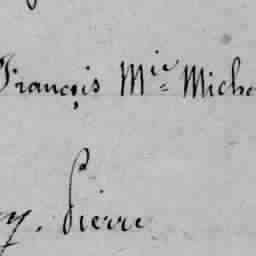 François Mie Miche
y. Pierre